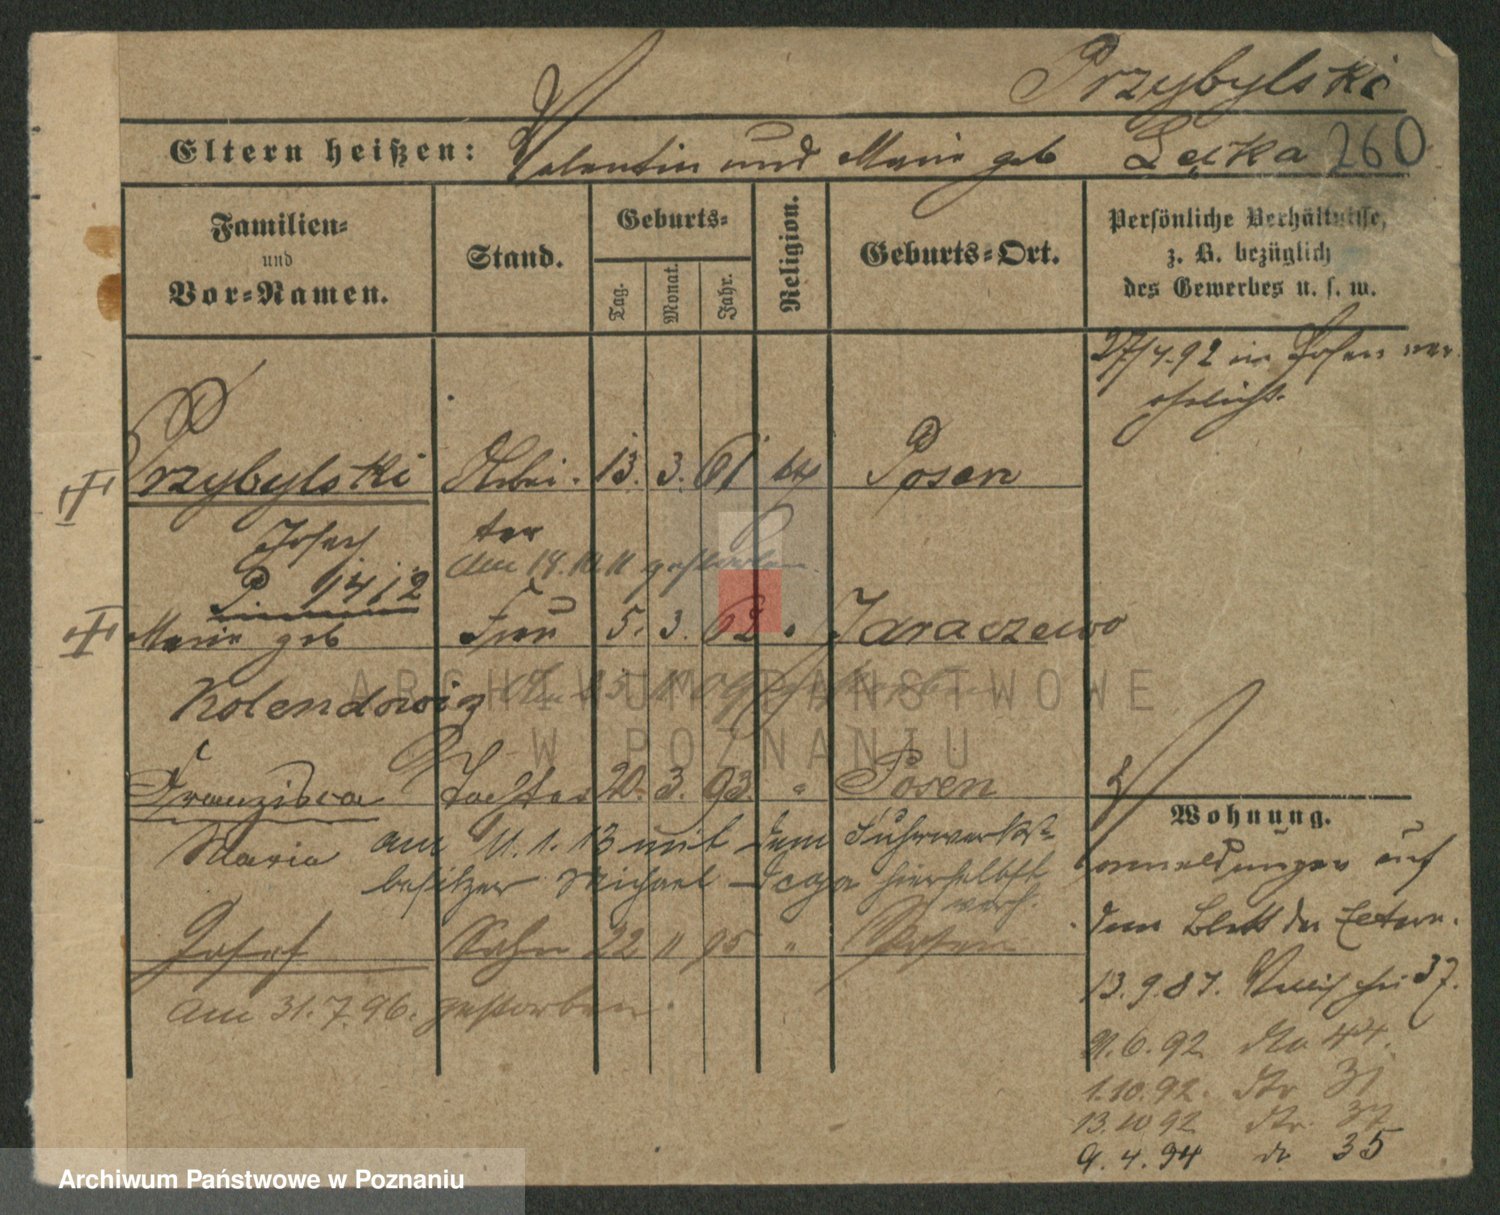 Przybylski
Eltern heißen: Valentin und Marie geb Łęcka 260
Familien=
und
Vor=Namen.
Stand.
Geburts=
Tag.
Monat.
Jahr.
Religion.
Geburts=Ort.
Persönliche Verhältnisse,
z. B. bezüglich
des Gewerbes u. s. w.
27/4.92 in Posen ver
ehelicht.
Przybylski Arbei- 13. 3. 61 kth Posen
Josef ter
am 18. 10. 11 gestorben.
P. 1412
Marie geb Frau 5. 3. 62 " Jaraczewo
Kolendowiz
Franziska Tochter 20. 3. 93. " Posen
Maria am 11. 1. 13 mit dem Fuhrwerks=
besitzer Michael hierselbst
verh.
Josef Sohn 22 11 95 " Posen
am 31.7.96. gestorben.
Wohnung.
Anmeldungen auf
dem Blatt der Eltern.
13.9.87. 37.
21.6.92 44.
1.10.92. 31
13.10.92
9.4.94 do 35
ARCHIWUM PAŃSTWOWE
W POZNANIU
Archiwum Państwowe w Poznaniu